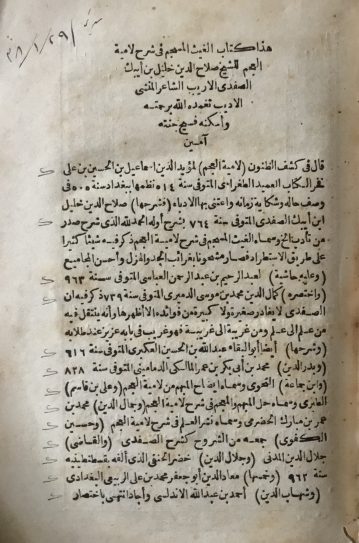 هذا كتاب الغيث المسجم فى شرح لامية
العجم للشيخ صلاح الدين خليل بن أيبك
الصفدى الاريب الشاعر المنشئ
الاديب تغمده الله برحمته
وأسكنه فسيح جنته
آمين
قال فى كشف الظنون (لامية العجم) لمؤيد الدين اسماعيل بن الحسين بن على
فخر الكتاب العميد الطغرائى المتوفى سنة ٥١٤ نظمها ببغداد سنة ٥٠٥ فى
وصف حاله وشكاية زمانه واعتنى بها الادباء (فشرحها) صلاح الدين خليل
ابن أيبك الصفدى المتوفى سنة ٧٦٤ بشرح أوله الحمد لله الذى شرح صدر
من تأدب الخ وسماه الغيث المسجم فى شرح لامية العجم ذكر فيه شيئا كثيرا
على طريق الاستطراد فصار مشحونا بغرائب الجد والهزل وأحسن المجاميع
(وعليه حاشية) لعبد الرحيم بن عبد الرحمن العباسى المتوفى سنة ٩٦٣
(واختصره) كمال الدين محمد بن موسى الدميرى المتوفى سنة ٧٣٩ ذكر فيه ان
الصفدى لا يغادر صغيرة ولا كبيرة من فوائده الا أظهرها وأنه ينتقل فيه
من علم الى علم ومن غريبة الى غريبة فهو غريب فى بابه عزيز عند طلابه
(وشرحها) أيضا أبو البقاء عبد الله بن الحسين العكبرى المتوفى سنة ٦١٦
(وبدر الدين) محمد بن أبى بكر بن عمر المالكى الدمامينى المتوفى سنة ٨٢٨
(وابن جماعة) النحوى وسماه ايضاح المبهم من لامية العجم (وعلى بن قاسم)
الطبرى وسماه حل المبهم والمعجم فى شرح لامية العجم (وجمال الدين) محمد بن
عمر بن مبارك الحضرمى وسماه نشر العلم فى شرح لامية العجم (وحسين
الكفوى) جمعه من الشروح كشرح الصفدى (والقاضى)
جلال الدين المدنى (وجلال الدين) خضر الحنفى الذى ألفه بقسطنطينيه
سنة ٩٦٢ (وخمسها) معاد الدين أبو جعفر محمد بن على الربيعى البغدادى
(وشهاب الدين) أحمد بن عبد الله الاندلسى وأجاد انتهى باختصار